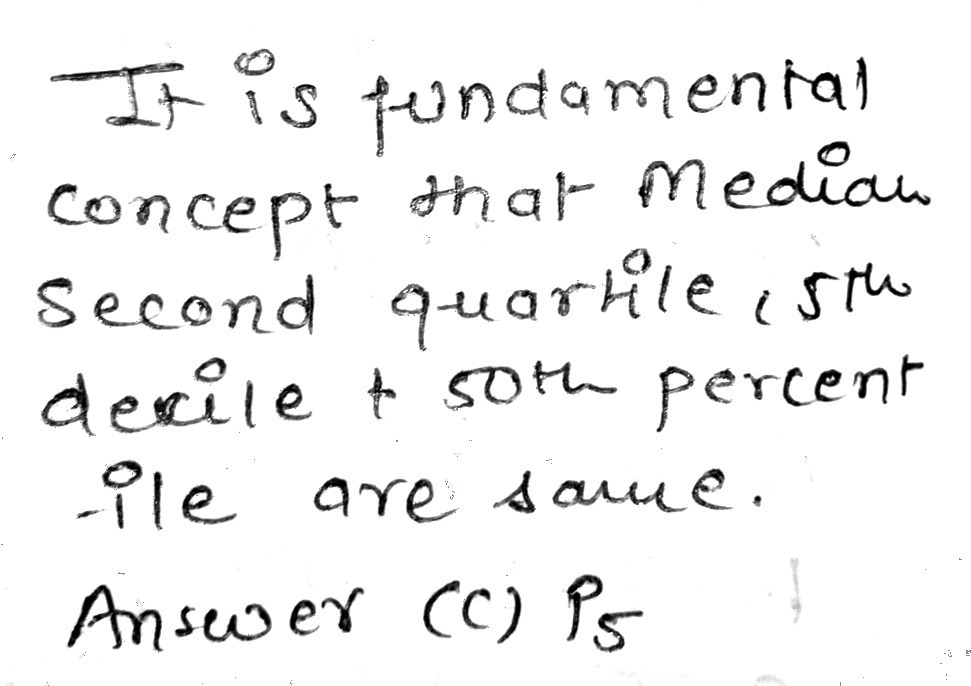 It is fundamental
concept that Median
Second quartile, 5th
decile + 50th percent
-ile are same.
Answer (C) P5